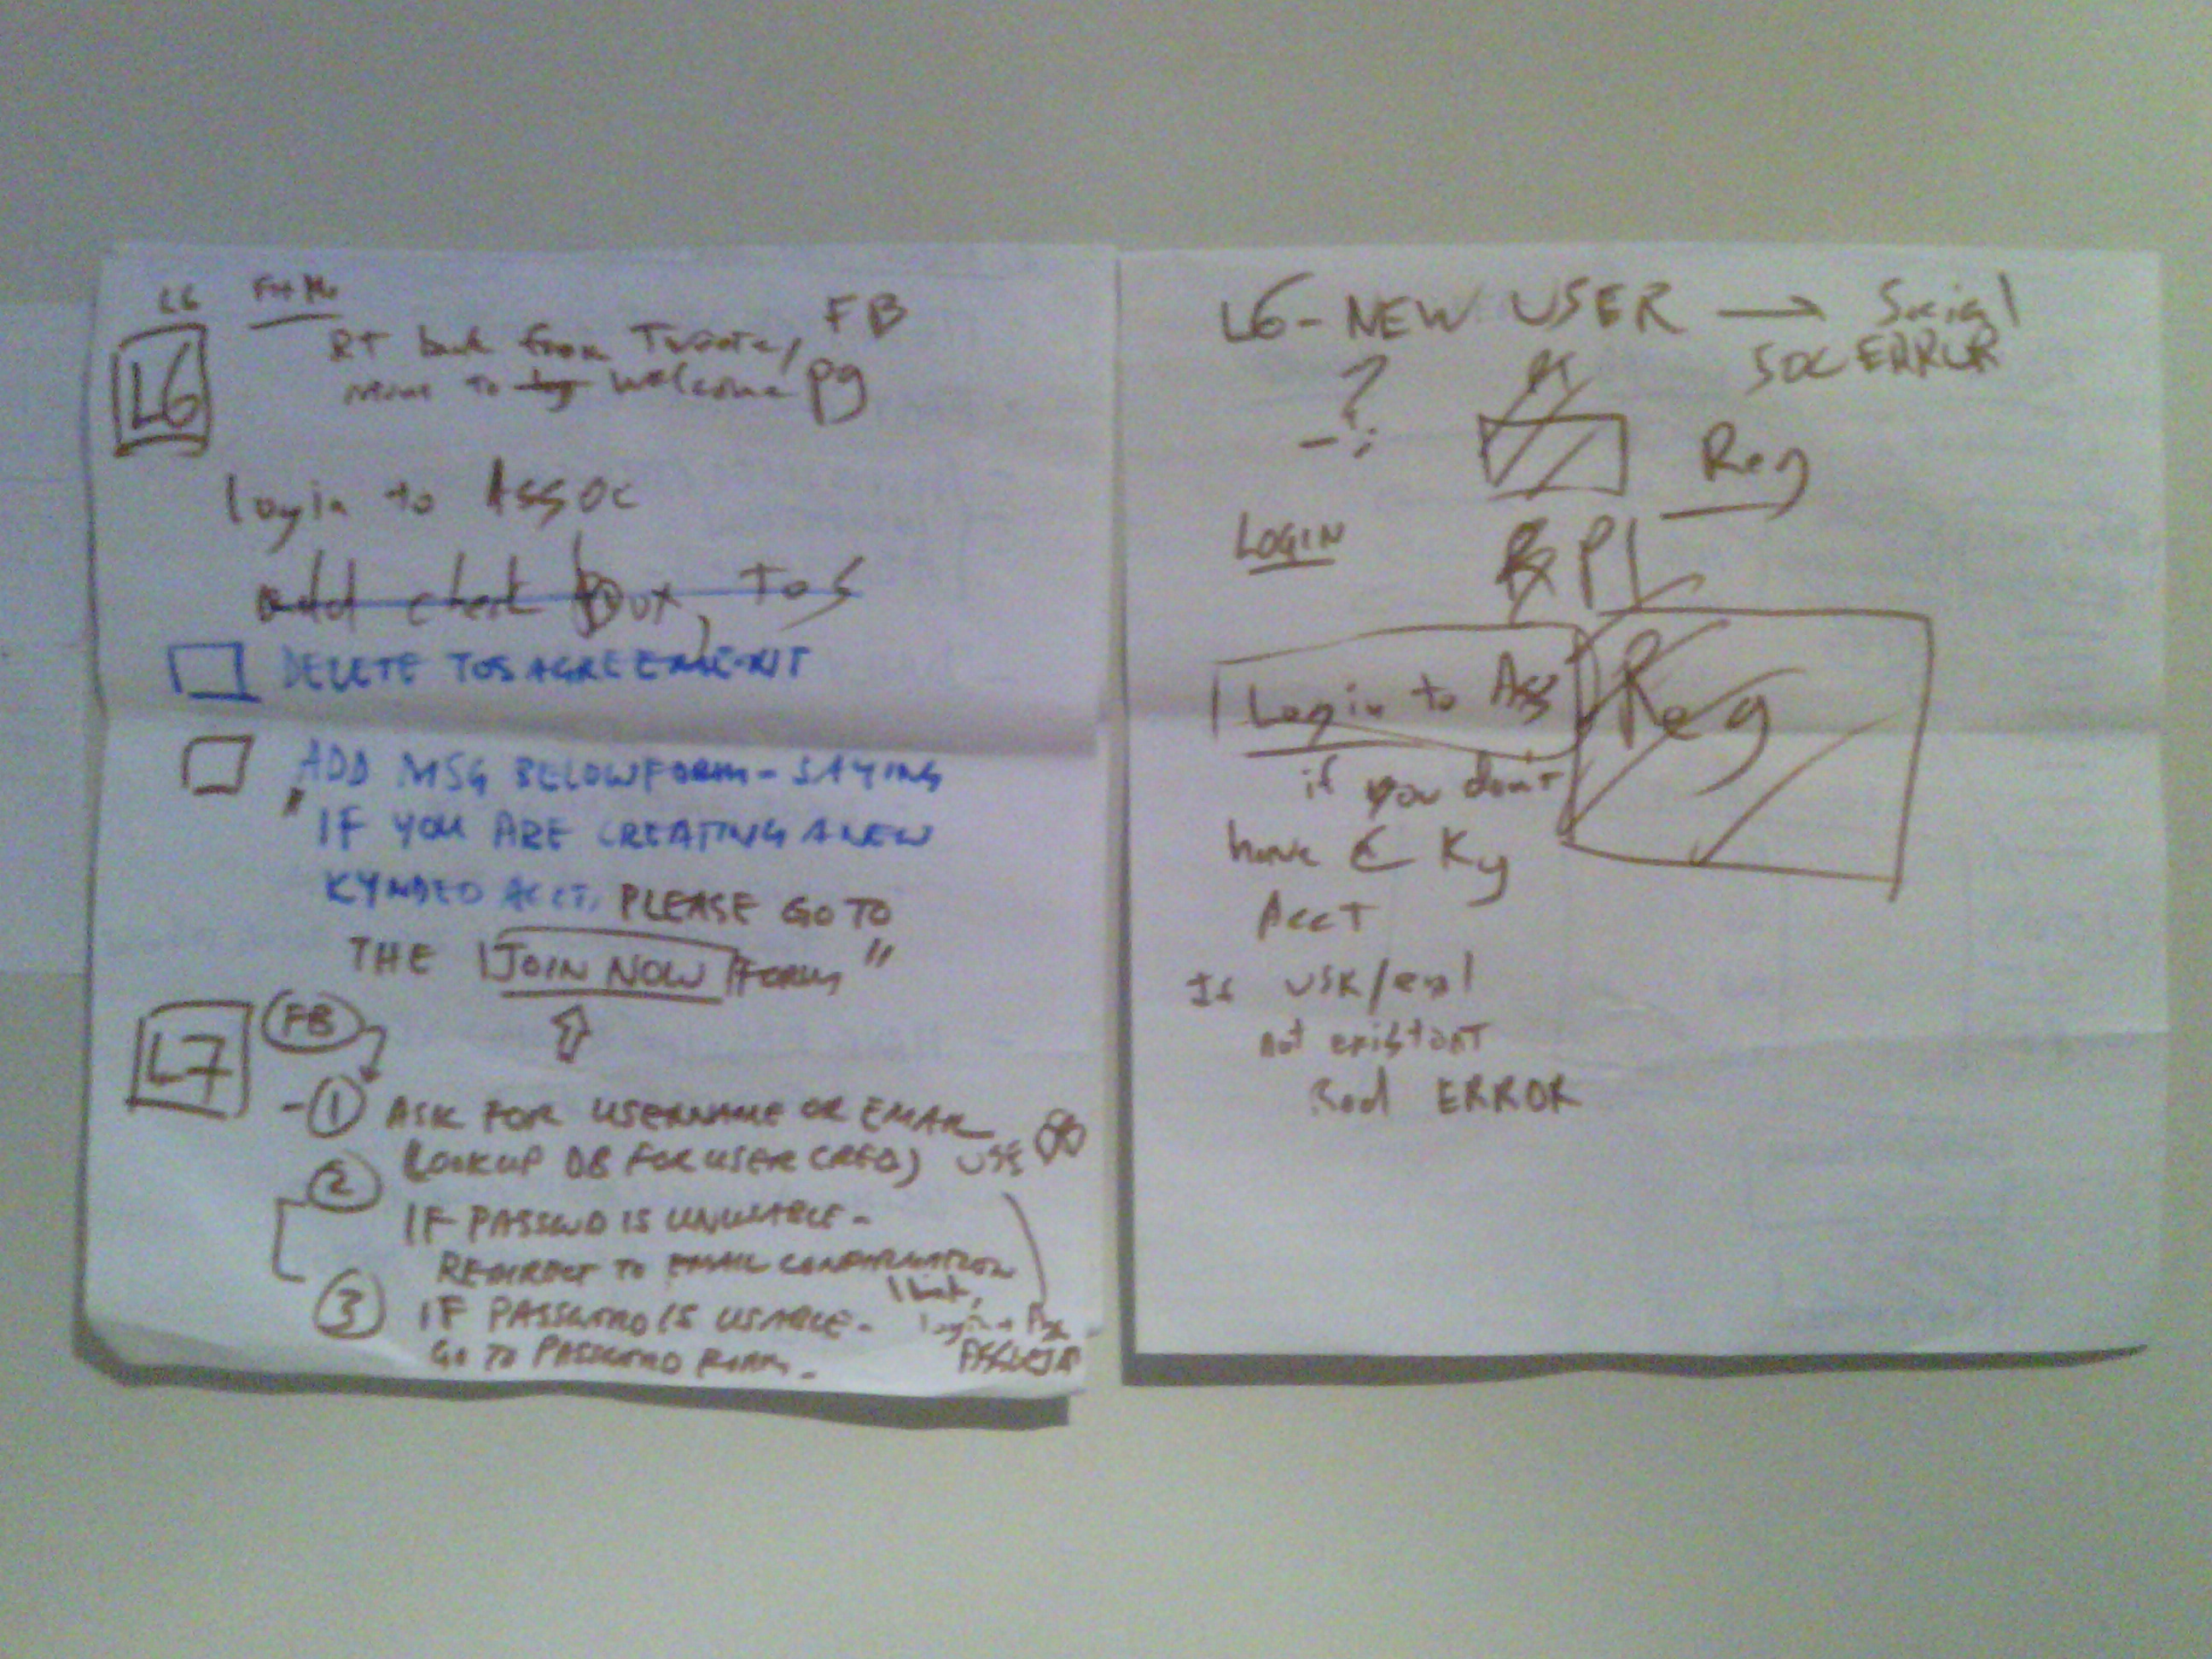 L6
L6
RT back from Twitter, FB
return to welcome pg
login to Assoc
add check box, ToS
DELETE TOS AGREEMENT
ADD MSG BELOW FORM - SAYING
"IF YOU ARE CREATING A NEW
KYNDED ACCT, PLEASE GO TO
THE JOIN NOW FORM"
L7 FB
-① ASK FOR USERNAME OR EMAIL
(LOOKUP DB FOR USER CRED) USE
②
IF PASSWD IS UNUSABLE -
REDIRECT TO EMAIL CONFIRMATION
③ IF PASSWORD IS USABLE -
GO TO PASSWORD FORM.
L6 - NEW USER → Social
SOC ERROR
?
Reg
LOGIN
Login to Ass
Reg
if you don't
have Ky
Acct
If USR/eml
not existant
Red ERROR